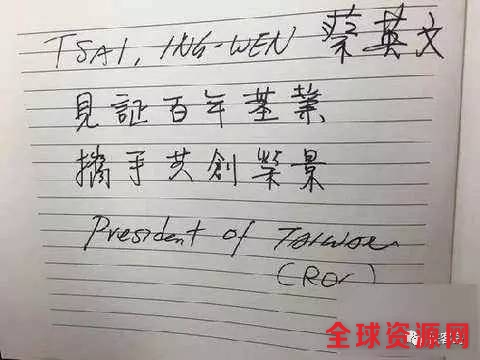 TSAI, ING-WEN 蔡英文
見証百年基業
攜手共創榮景
President of TAIWAN
(ROC)
全球资源网